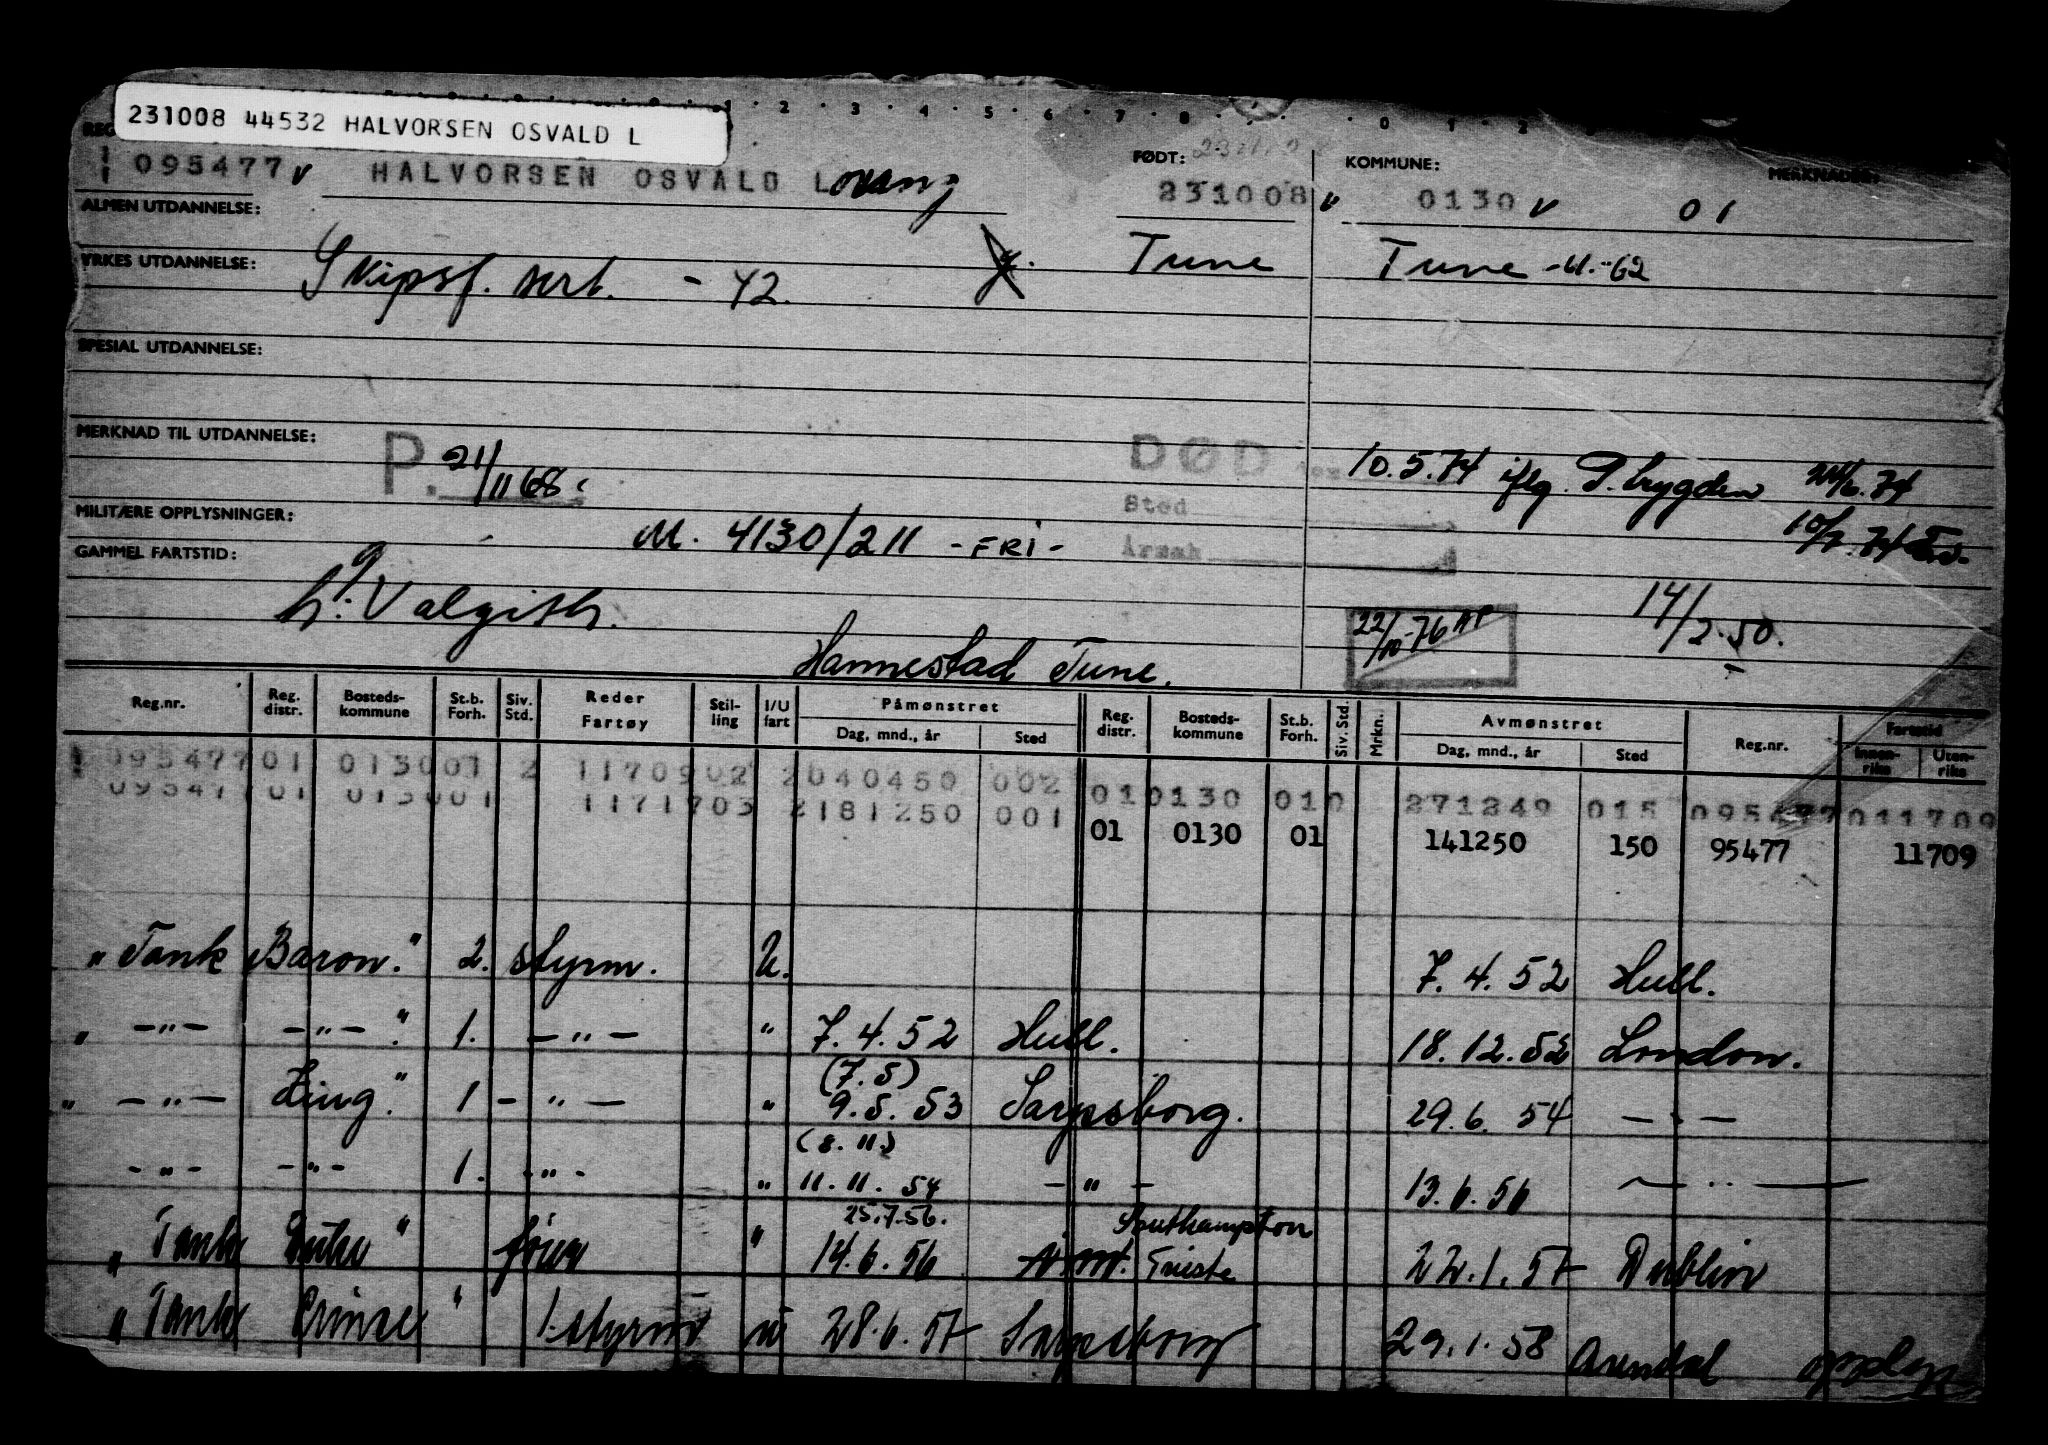 231008 44532 HALVORSEN OSVALD L
095477 v HALVORSEN OSVALD Lovang
FØDT: 231008 v
KOMMUNE: 0130 v 01
MERKNADER:
ALMEN UTDANNELSE:
YRKES UTDANNELSE: Skipsf. sert. - 42. Tune Tune -61.-62
SPESIAL UTDANNELSE:
MERKNAD TIL UTDANNELSE: P. 21/11 68.
DØD 10.5.74 iflg. P. trygden 24/6.74
Sted 10/7.74
Årsak
MILITÆRE OPPLYSNINGER: M. 4130/211 -FRI-
GAMMEL FARTSTID:
14/2.50.
22/10-76
Hannestad Tune.
Reg.nr. Reg. distr. Bosteds-kommune St.b. Forh. Siv. Std. Reder Fartøy Stil-ling I/U fart Påmønstret Dag, mnd., år Sted Reg. distr. Bosteds-kommune St.b. Forh. Siv. Std. Mrkn. Avmønstret Dag, mnd., år Sted Reg.nr. Fartstid Innen-riks Uten-riks
095477 01 0130 01 2 1170902 2 040450 002
01 0130 010 271249 015 095477 011709
095477 01 0130 01 1171703 2 181250 001
01 0130 01 141250 150 95477 11709
"Tank Baron." 2. styrm. U. 7.4.52 Hull.
" -"- -"-." 1. -"- " 7.4.52 Hull. 18.12.52 London.
(7.5)
" -"- King." 1 -"- " 9.5.53 Sarpsborg. 29.6.54 -"-
(8.11)
-"- -"- 1. -"- " 11.11.54 -"- 13.6.56 -"-
25.7.56. Southampton
"Tank Duke" " 14.6.56 Trieste 22.1.57 Dublin
"Tank Prince" 1.styrm u 28.6.57 Sarpsborg 29.1.58 Arendal